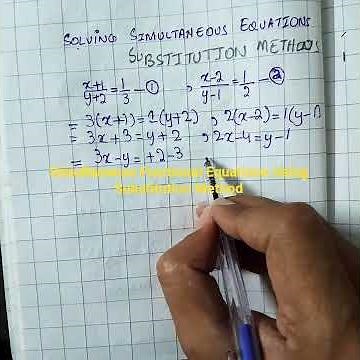 SOLVING SIMULTANEOUS EQUATIONS
SUBSTITUTION METHODS
(x+1)/(y+2) = 1/3 - ① , (x-2)/(y-1) = 1/2 - ②
= 3(x+1) = 1(y+2) , 2(x-2) = 1(y-1)
= 3x+3 = y+2 , 2x-4 = y-1
= 3x-y = +2-3
Simultaneous Fractional Equations Using
Substitution Method